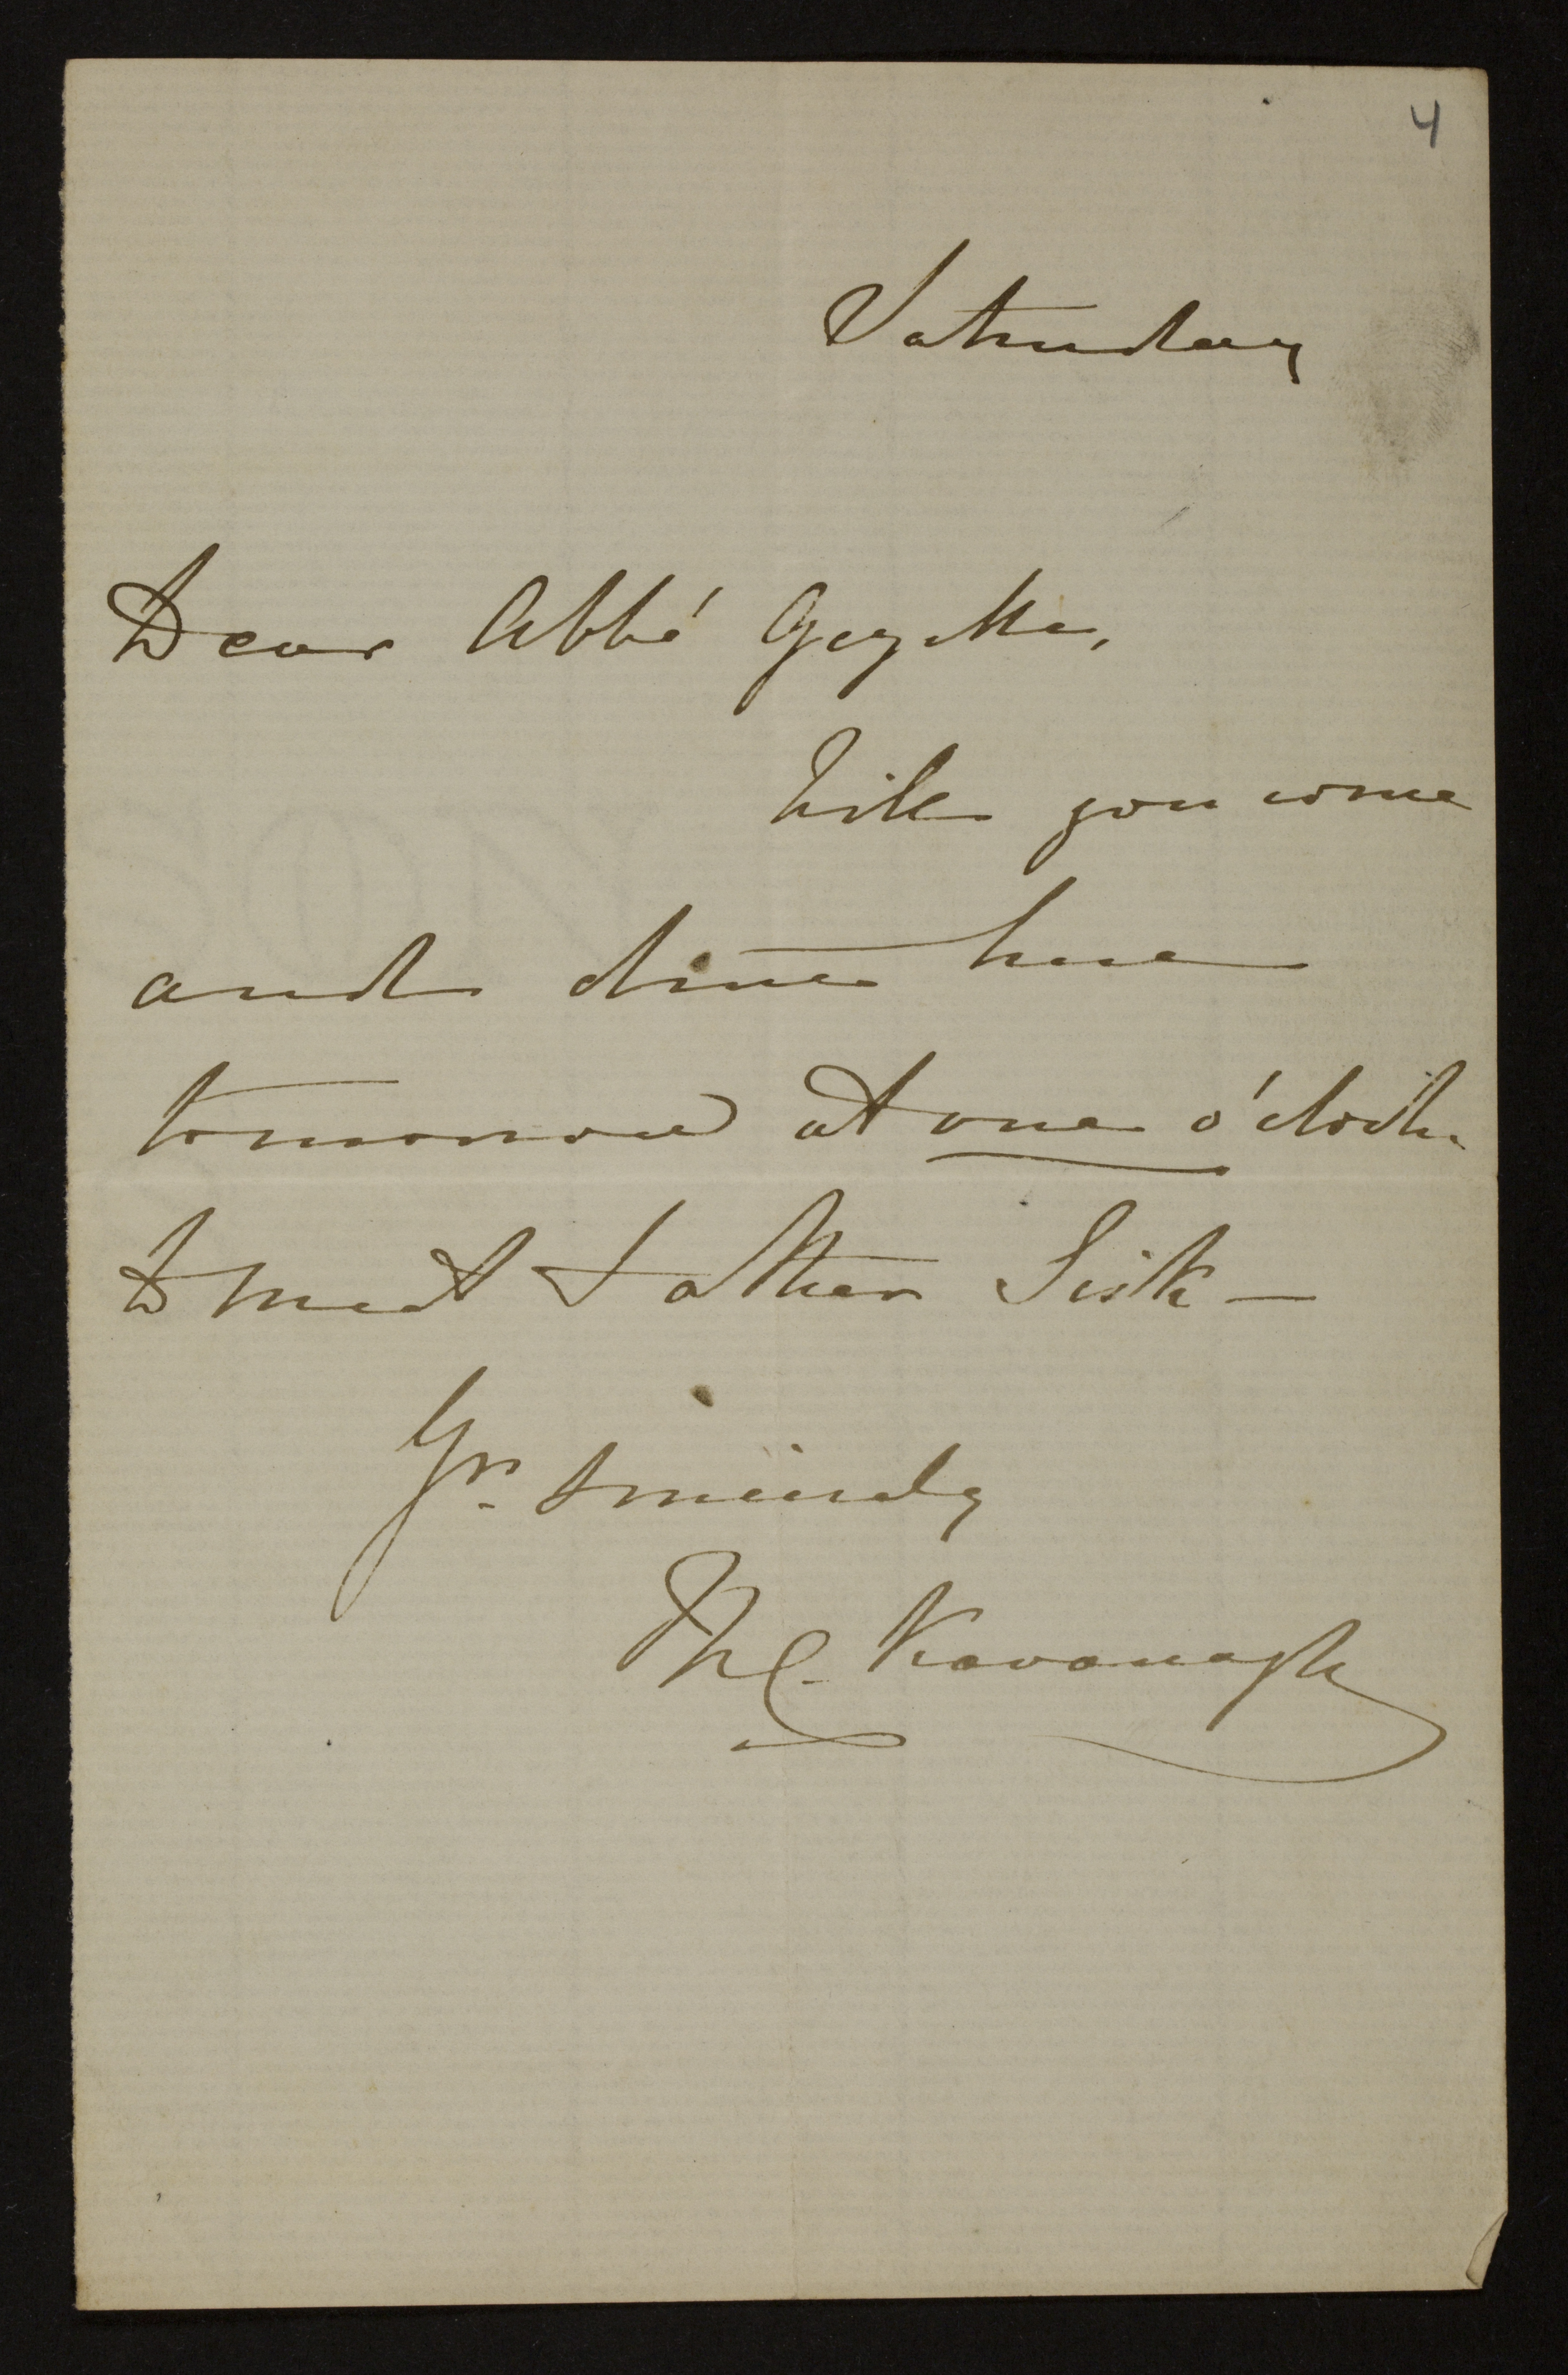 4
Saturday
Dear Abbé
Will you come
and dine here
tomorrow at one o'clock
to meet Father Sisk —
Yrs. sincerely
Kavanagh